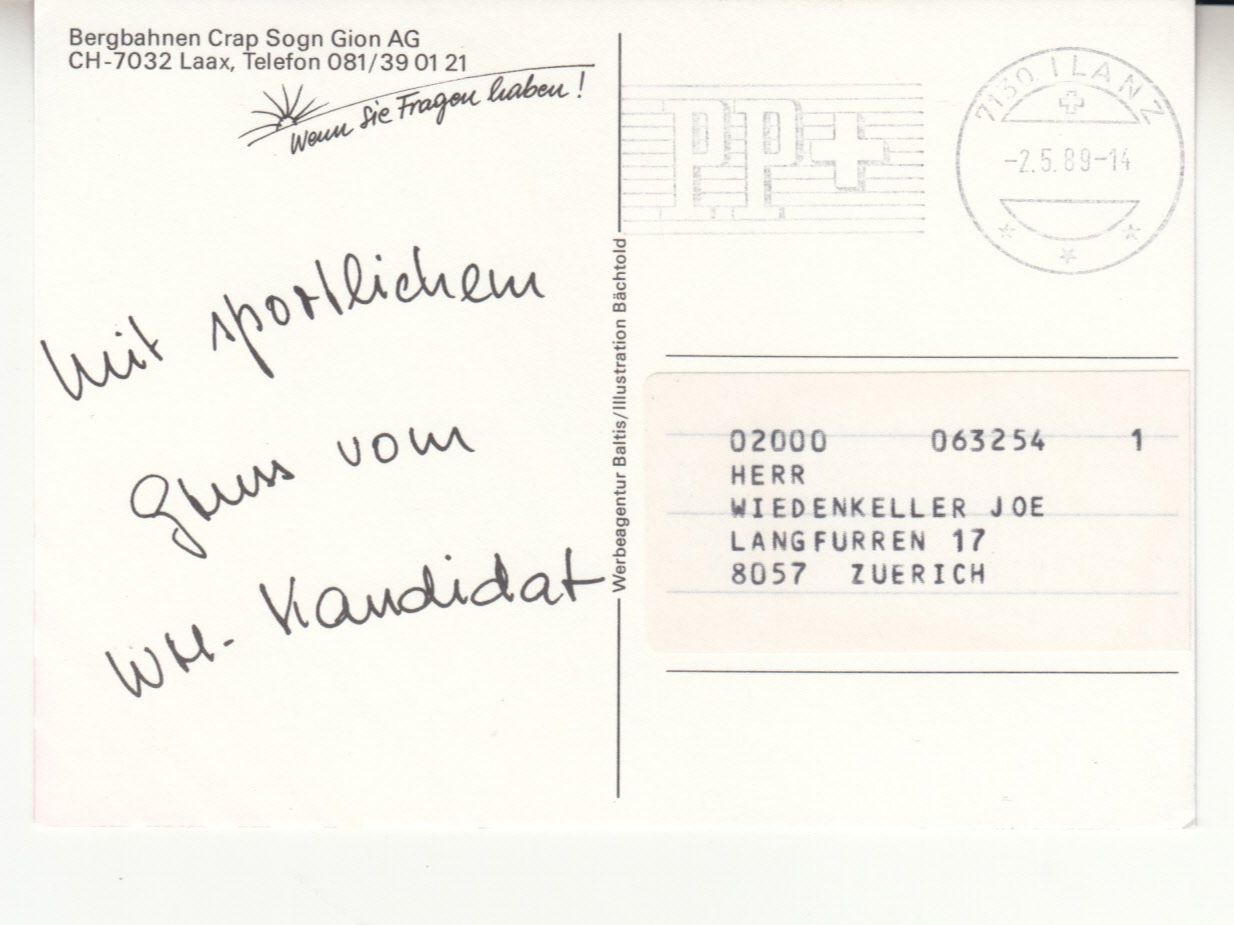 Bergbahnen Crap Sogn Gion AG
CH-7032 Laax, Telefon 081/39 01 21
Wenn Sie Fragen haben!
Mit sportlichem
Gruss vom
WM-Kandidat
Werbeagentur Baltis/Illustration Bächtold
PP+
7130 ILANZ
-2.5.89-14
02000 063254 1
HERR
WIEDENKELLER JOE
LANGFURREN 17
8057 ZUERICH